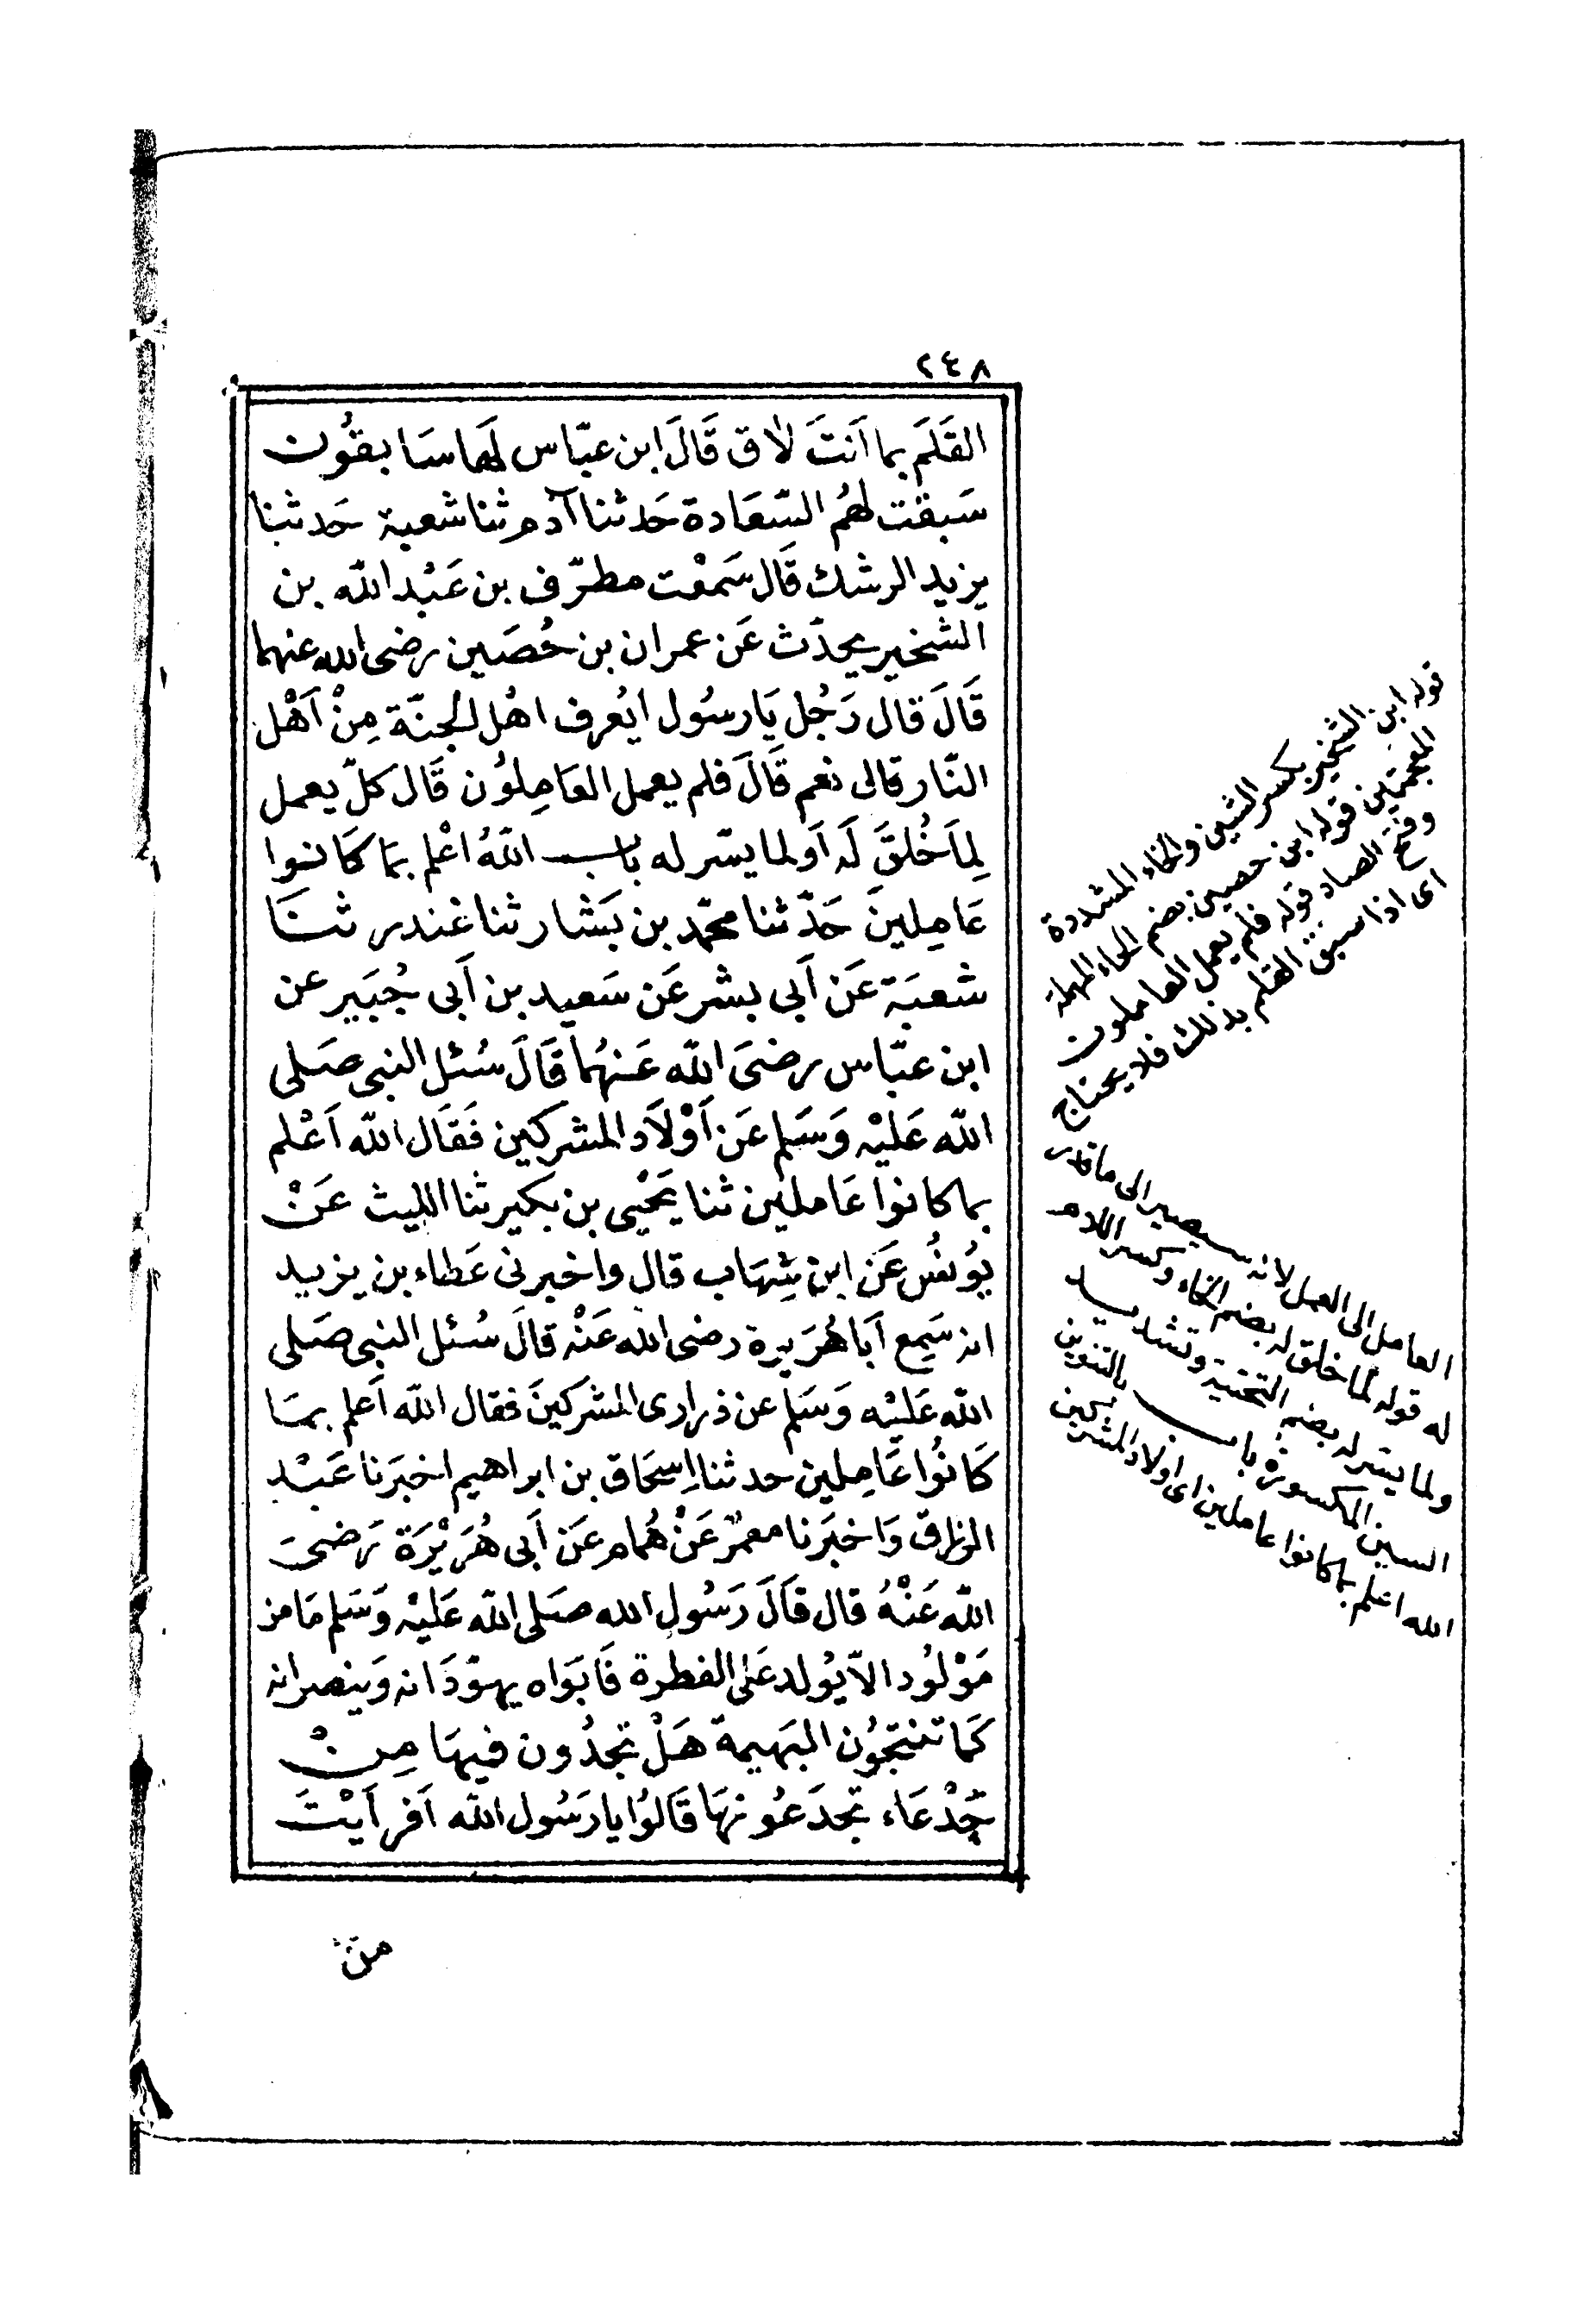 ٢٤٨
القَلَم بما اَنتَ لاق قَالَ ابن عبّاس لَهَا سَابقُون
سَبقت لهُم السّعَادة حَدثنا آدم ثنا شعبة حَدثنا
يزيد الرشك قَال سَمعْت مطرّف بن عَبْد الله بن
الشخير يحدّث عَن عمران بن حُصَين رضى الله عنهما
قَالَ قال رَجُل يَا رسُول ايُعرف اهْل الجنّة مِنْ اَهْل
النّار قال نعم قَالَ فلم يعمل العَامِلوُن قَال كلّ يعمل
لِمَا خُلقَ لَه اَو لما يسّر له باب اللهُ اعْلم بمَا كَانوا
عَامِلينَ حَدّثنا محمّد بن بَشار ثنا غندر ثنَا
شعبَة عَن اَبى بشر عَن سَعيد بن اَبى جُبَير عن
ابن عبّاس رضىَ اللّه عَنهُما قَالَ سُئل النبى صَلى
اللّه عَليْه وَسَلم عَن اَوْلاَد المشركين فَقَال اللّه اَعْلم
بما كانوا عَاملين ثنا يَحْيى بن بكير ثنا الليث عَنْ
يوُنسُ عَن ابن شِهَاب قال واخبرنى عَطاء بن يزيد
انه سَمِع اَبَا هُرَيرة رضى الله عَنْه قالَ سُئل النبى صَلى
اللّه عَليْه وَسَلم عن ذرارى المشركينَ فقال اللّه اَعلم بمَا
كَانُوا عَامِلين حدثنا اِسحَاق بن ابراهيم اخبَرنا عَبْد
الرزاق وَاخبَرنا معمرٌ عَنْ هُمام عَن اَبى هُرَيْرَة رَضىَ
اللّه عَنْهُ قال قاَلَ رَسُول الله صَلى اللّه عَليْه وَسَلم مَا من
مَوْلُود الاّ يُولد عَلى الفطرة فَابَوَاه يهوّدَانه وَينصرانه
كَمَا تنتجوُن البَهيمة هَلْ تجدُون فيهَا مِنْ
جّدْعَاء تجدَعُونهَا قَالوُا يا رَسُول اللّه اَفرَاَيْتَ
قوله ابن الشخير بكسر الشين والخاء المشددة
المعجمتين قوله ابن حصين بضم الحاء المهملة
وفتح الصاد قوله فلم يعمل العاملون
اى اذا سبق القلم بذلك فلا يحتاج
العامل الى العمل لانه سيصير الى ما قدر
له قوله لما خلق له بضم الخاء وكسر اللام
ولما يسر له بضم التحتية وتشديد
السين المكسورة باب بالتنوين
الله اعلم بما كانوا عاملين اى اولاد المشركين
من